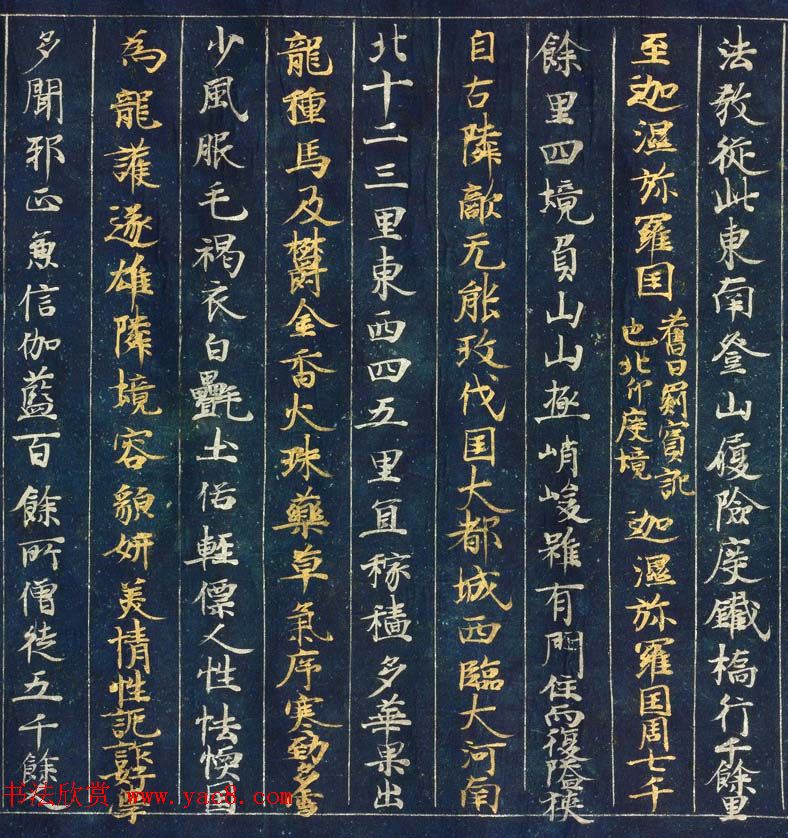 法教從此東南登山履險度鐵橋行千餘里
至迦濕弥羅国舊曰罽賓訛也北印度境迦濕弥羅国周七千
餘里四境負山山極峭峻雖有門徑而復隘狹
自古隣敵无能攻伐国大都城西臨大河南
北十二三里東西四五里宜稼穡多華果出
龍種馬及欝金香火珠藥草氣序寒勁多雪
少風服毛褐衣白㲲土俗輕僄人性怯懦国
為龍護遂雄隣境容貌妍美情性詭詐好學
多聞邪正兼信伽藍百餘所僧徒五千餘人
书法欣赏 www.yac8.com